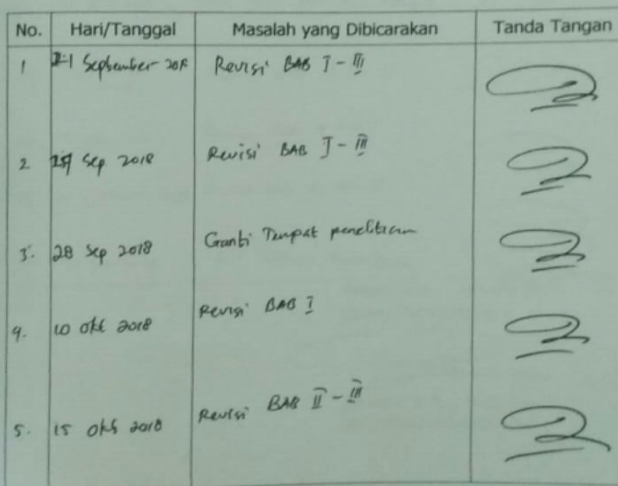 No. Hari/Tanggal Masalah yang Dibicarakan Tanda Tangan
1 21 September 2018 Revisi BAB I - III
2 Sep 2018 Revisi BAB I - III
3. 28 Sep 2018 Ganti Tempat penelitian
4. 10 Okt 2018 Revisi BAB I
5. 15 Okt 2018 Revisi BAB II - III